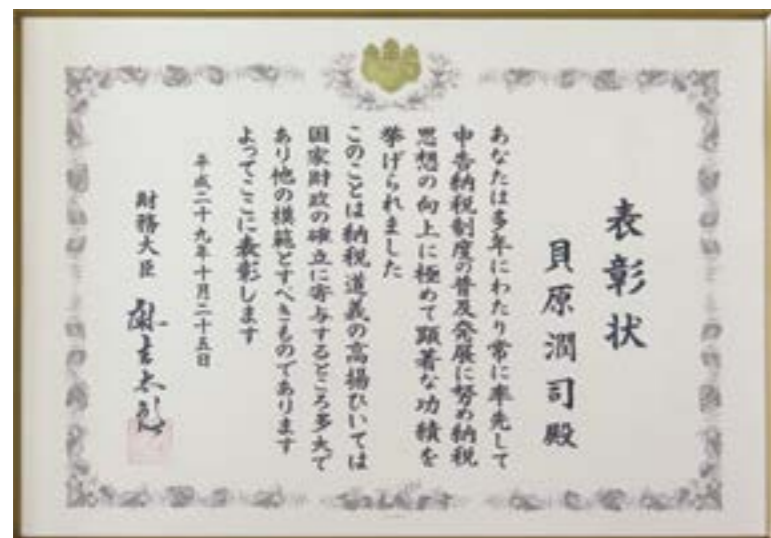 表彰状
貝原潤司殿
あなたは多年にわたり常に率先して
申告納税制度の普及発展に努め納税
思想の向上に極めて顕著な功績を
挙げられました
このことは納税道義の高揚ひいては
国家財政の確立に寄与するところ多大で
あり他の模範とすべきものであります
よってここに表彰します
平成二十九年十月二十五日
財務大臣 麻生太郎